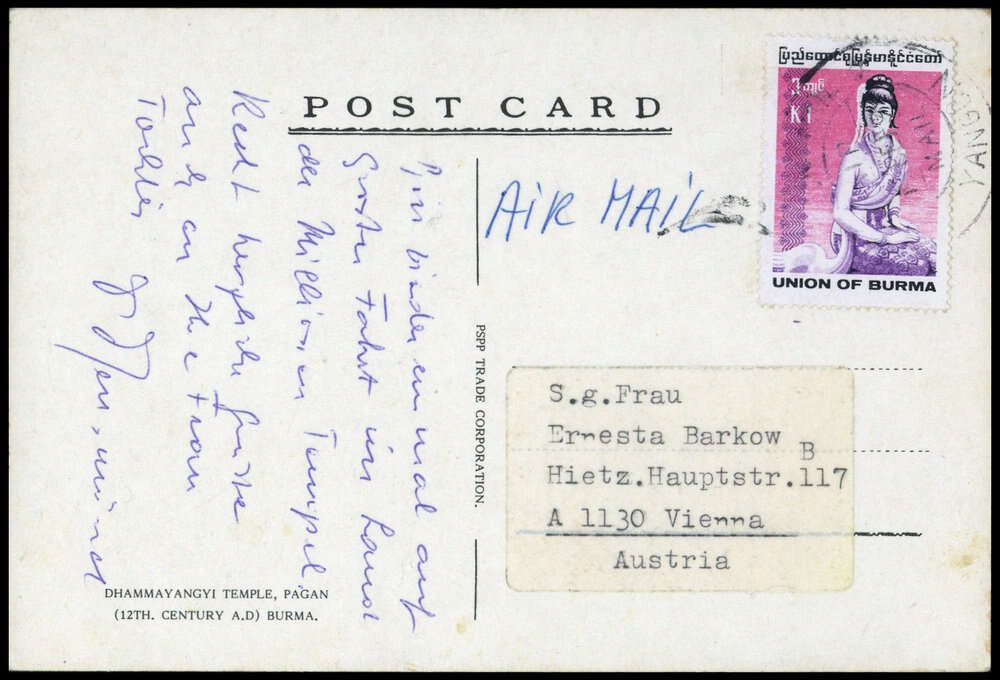 POST CARD
Bin wieder einmal auf
Fahrt ins Land
der Millionen Tempel.
Recht herzliche Grüsse
auch an Ihre Frau
Tochter
DHAMMAYANGYI TEMPLE, PAGAN
(12TH. CENTURY A.D) BURMA.
PSPP TRADE CORPORATION.
AIR MAIL
ပြည်ထောင်စုမြန်မာနိုင်ငံတော်
ကျပ်
K1
UNION OF BURMA
S.g.Frau
Ernesta Barkow
B
Hietz.Hauptstr.117
A 1130 Vienna
Austria